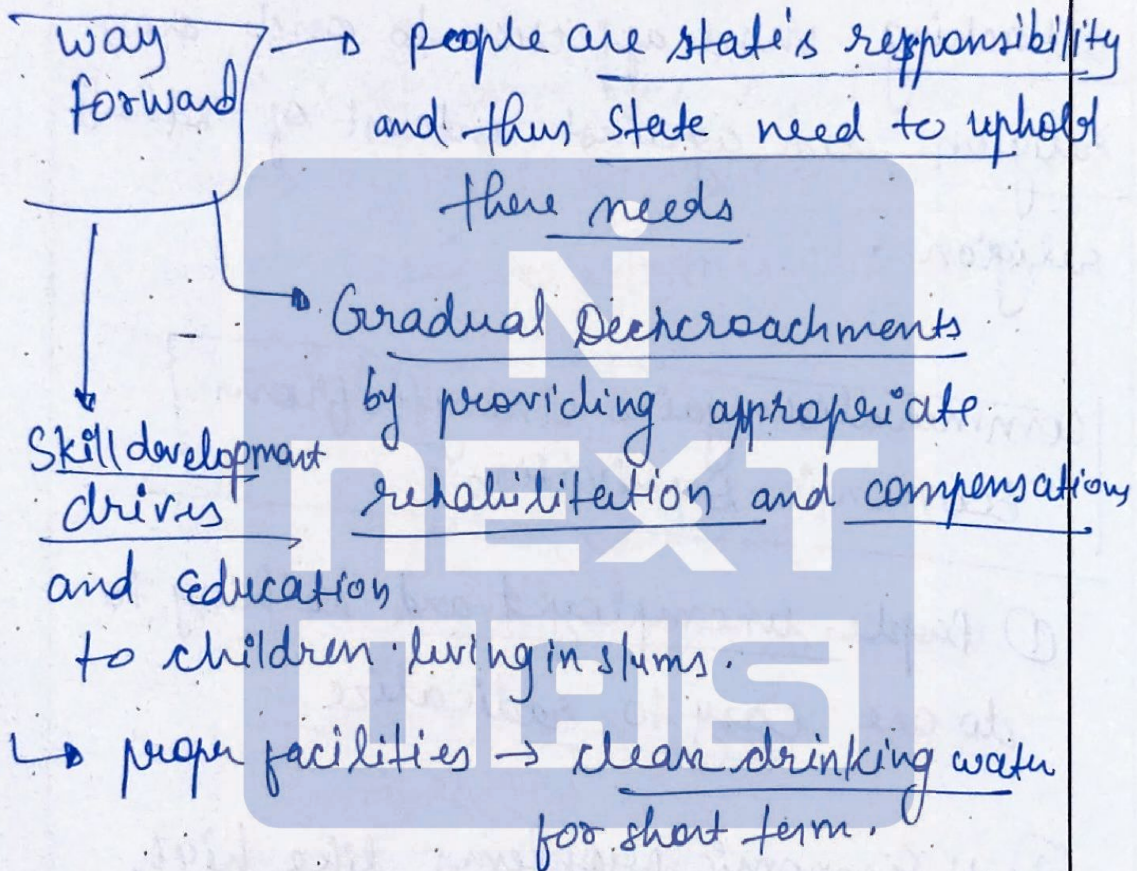 way → people are state's responsibility
forward
and thus state need to uphold
there needs
→ Gradual Decncroachments
by providing appropriate
rehabilitation and compensations
Skill development
drives
and Education
to children living in slums.
↳ proper facilities → clean drinking water
for short term.
NEXT
IAS